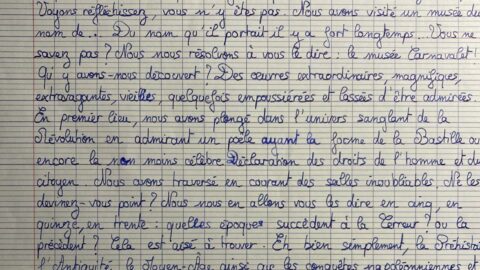 Voyons réfléchissez, vous n'y êtes pas. Nous avons visité un musée du
nom de... Du nom qu'il portait il y a fort longtemps. Vous ne
savez pas ? Nous nous résolvons à vous le dire : le musée Carnavalet !
Qu'y avons-nous découvert ? Des œuvres extraordinaires, magnifiques,
extravagantes, vieilles, quelquefois empoussiérées et lassées d'être admirées.
En premier lieu, nous avons plongé dans l'univers sanglant de la
Révolution en admirant un poêle ayant la forme de la Bastille ou
encore la non moins célèbre Déclaration des droits de l'homme et du
citoyen. Nous avons traversé en courant des salles inoubliables. Ne les
devinez-vous point ? Nous nous en allons vous les dire en cinq, en
quinze, en trente : quelles époques succèdent à la Terreur ? ou la
précèdent ? Cela est aisé à trouver. Eh bien simplement, la Préhistoire
l'Antiquité, le Moyen-Âge ainsi que les conquêtes napoléoniennes et